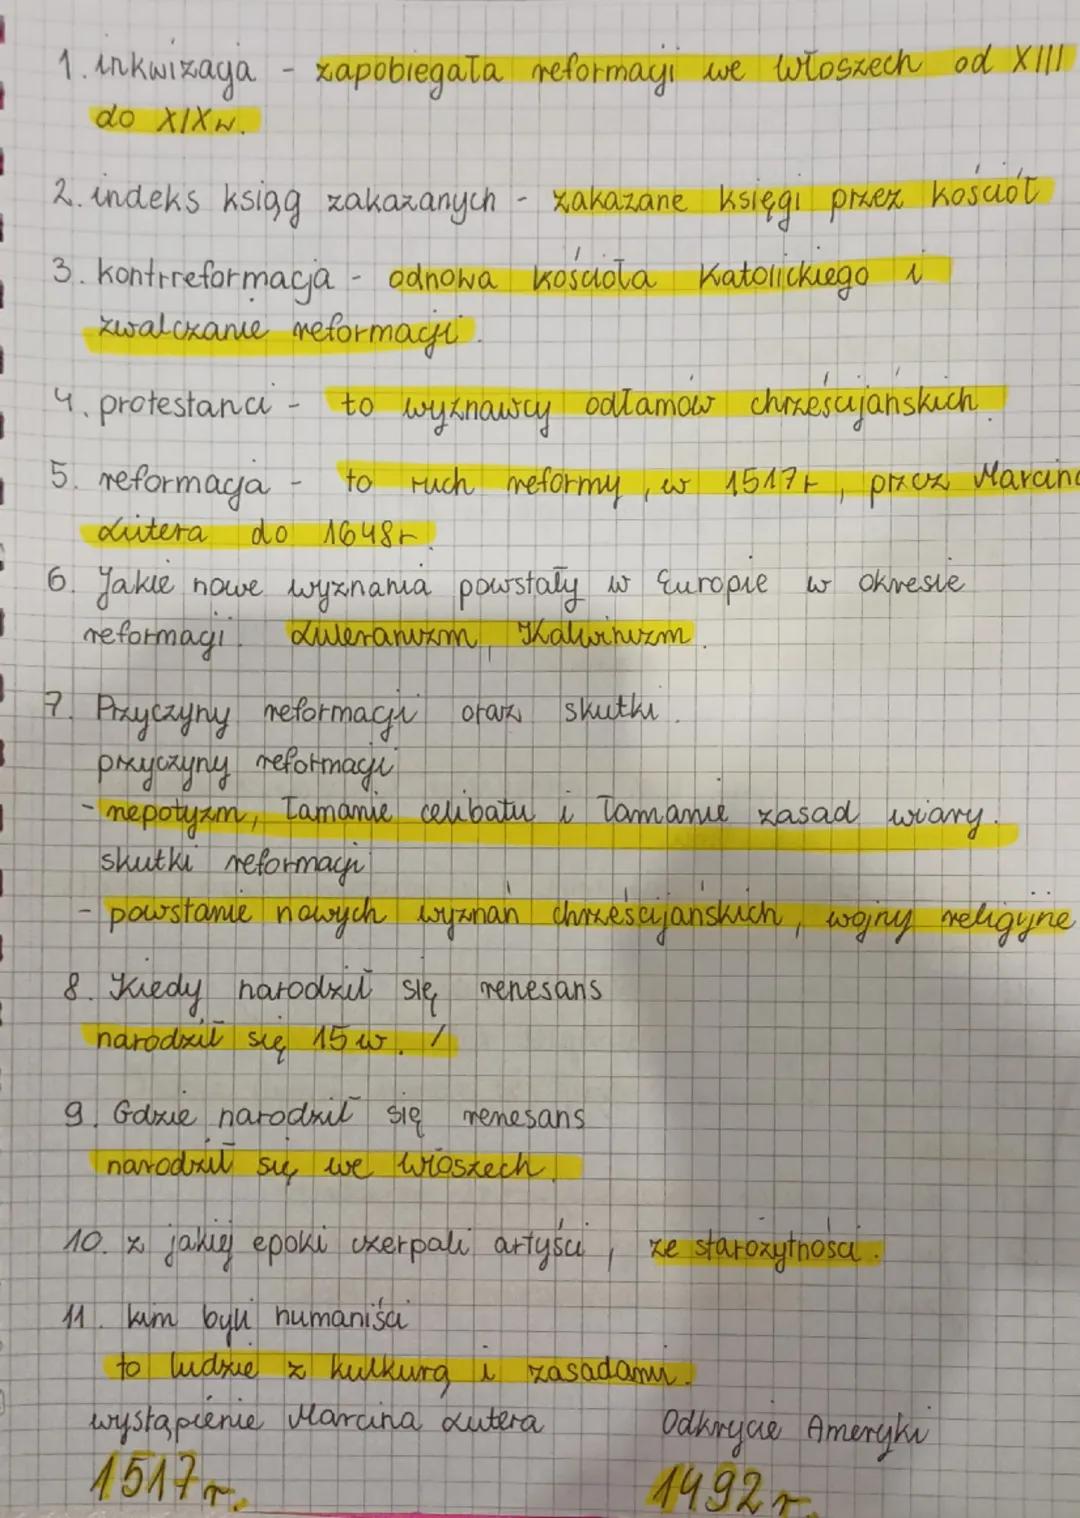 1. inkwizacja - zapobiegała reformacji we włoszech od XIII
do XIX w.
2. indeks ksiąg zakazanych - zakazane księgi przez kościół
3. kontrreformacja - odnowa kościoła Katolickiego i
zwalczanie reformacji.
4. protestanci - to wyznawcy odłamów chrześcijańskich.
5. reformacja - to ruch reformy, w 1517r, przez Marcina
Lutera do 1648r.
6. Jakie nowe wyznania powstały w Europie w okresie
reformacji. Luteranizm, Kalwinizm.
7. Przyczyny reformacji oraz skutki.
przyczyny reformacji
- nepotyzm, łamanie celibatu i łamanie zasad wiary.
skutki reformacji
- powstanie nowych wyznań chrześcijańskich, wojny religijne
8. Kiedy narodził się renesans
narodził się 15 w. /
9. Gdzie narodził się renesans
narodził się we włoszech.
10. z jakiej epoki czerpali artyści, ze starożytności.
11. kim byli humaniści
to ludzie z kulkurą i zasadami.
wystąpienie Marcina Lutera Odkrycie Ameryki
1517 r. 1492 r.